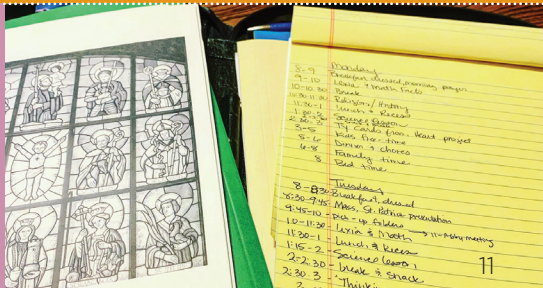 Monday
8-9 Breakfast, dressed, morning prayer
9-10 Lexia & Math Facts
10-10:30 Break
10:30-11:30 Religion/History
11:30-1 Lunch & Recess
Science lesson
TY Cards from Heart project
5-6 Kids free time
Dinner & chores
6-8 Family time
8 Bed time
Tuesday
8-8:30 Breakfast, dressed
8:30-9:45 Mass, St. Patrick presentation
9:45-10 pick-up folders → 11-Ashy meeting
10-11:30 Lexia & Math
11:30-1 Lunch & Recess
1:15-2 Science lesson
2-2:30 break & snack
2:30-3 Thinki
11